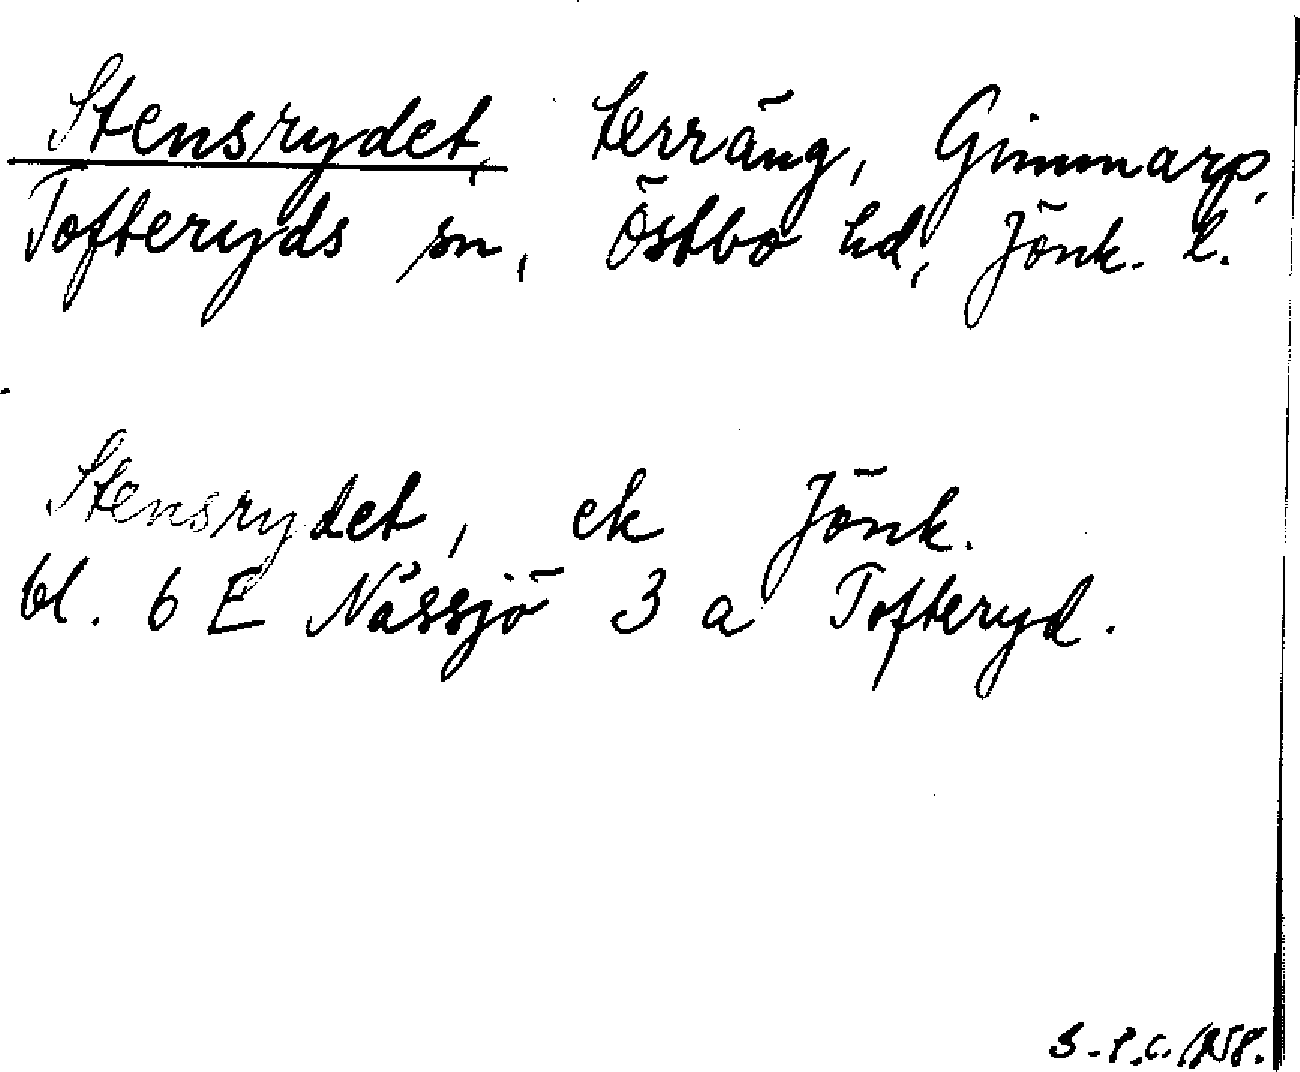 Stensrydet, terräng, Gimmarp,
Tofteryds sn, Östbo hd, Jönk. l.
Stensrydet, ek Jönk.
bl. 6 E Nässjö 3 a Tofteryd.